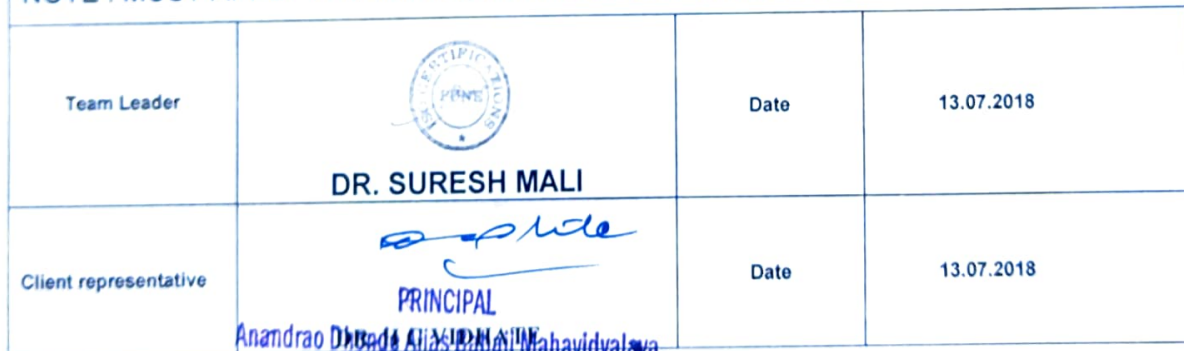 Team Leader
CERTIFICATIONS
PUNE
DR. SURESH MALI
Date
13.07.2018
Client representative
PRINCIPAL
Anandrao Dhonde Alias Babaji Mahavidyalaya
Date
13.07.2018